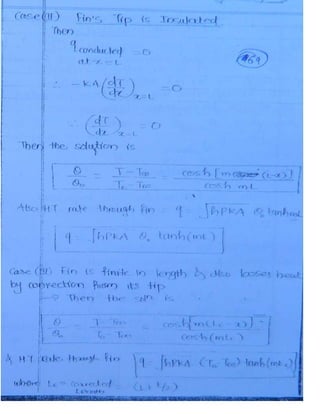 Case (II) Fin's Tip is Insulated
Then
q conducted = 0
at x = L
∴ -kA (dT/dx) x=L = 0
∴ (dT/dx) x=L = 0
Then the solution is
θ/θo = T - T∞ / To - T∞ = cosh [m (L-x)] / cosh mL
Also HT rate through fin = q = √hPKA θo tanh mL
q = √hPKA θo tanh (mL)
Case (III) Fin is finite in length & also looses heat
by convection from its tip
→ Then the soln is
θ/θo = T - T∞ / To - T∞ = cosh [m(Lc - x)] / cosh (mLc)
& HT Rate through fin q = √hPKA (To - T∞) tanh (mLc)
where Lc = corrected Length = (L + t/2)